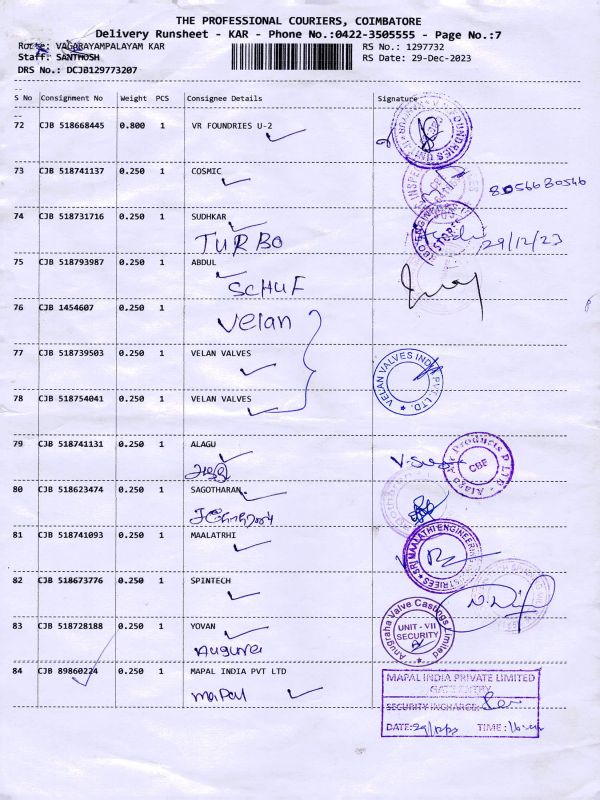 THE PROFESSIONAL COURIERS, COIMBATORE
Delivery Runsheet - KAR - Phone No.:0422-3505555 - Page No.:7
Route: VAGARAYAMPALAYAM KAR RS No.: 1297732
Staff: SANTHOSH RS Date: 29-Dec-2023
DRS No.: DCJB129773207
S No Consignment No Weight PCS Consignee Details Signature
72 CJB 518668445 0.800 1 VR FOUNDRIES U-2
73 CJB 518741137 0.250 1 COSMIC
8056680546
74 CJB 518731716 0.250 1 SUDHKAR
TURBO
STORES
29/12/23
75 CJB 518793987 0.250 1 ABDUL
SCHUF
76 CJB 1454607 0.250 1
Velan
77 CJB 518739503 0.250 1 VELAN VALVES
VELAN VALVES INDIA PVT. LTD.
78 CJB 518754041 0.250 1 VELAN VALVES
79 CJB 518741131 0.250 1 ALAGU
Products P LTD
CBE
80 CJB 518623474 0.250 1 SAGOTHARAN
81 CJB 518741093 0.250 1 MAALATRHI
SRI MAALATHI ENGINEERING INDUSTRIES
82 CJB 518673776 0.250 1 SPINTECH
83 CJB 518728188 0.250 1 YOVAN
Anugraha Valve Castings Limited
UNIT - VII
SECURITY
84 CJB 89860224 0.250 1 MAPAL INDIA PVT LTD
mapal
MAPAL INDIA PRIVATE LIMITED
GATE ENTRY
SECURITY INCHARGE:
DATE: TIME: